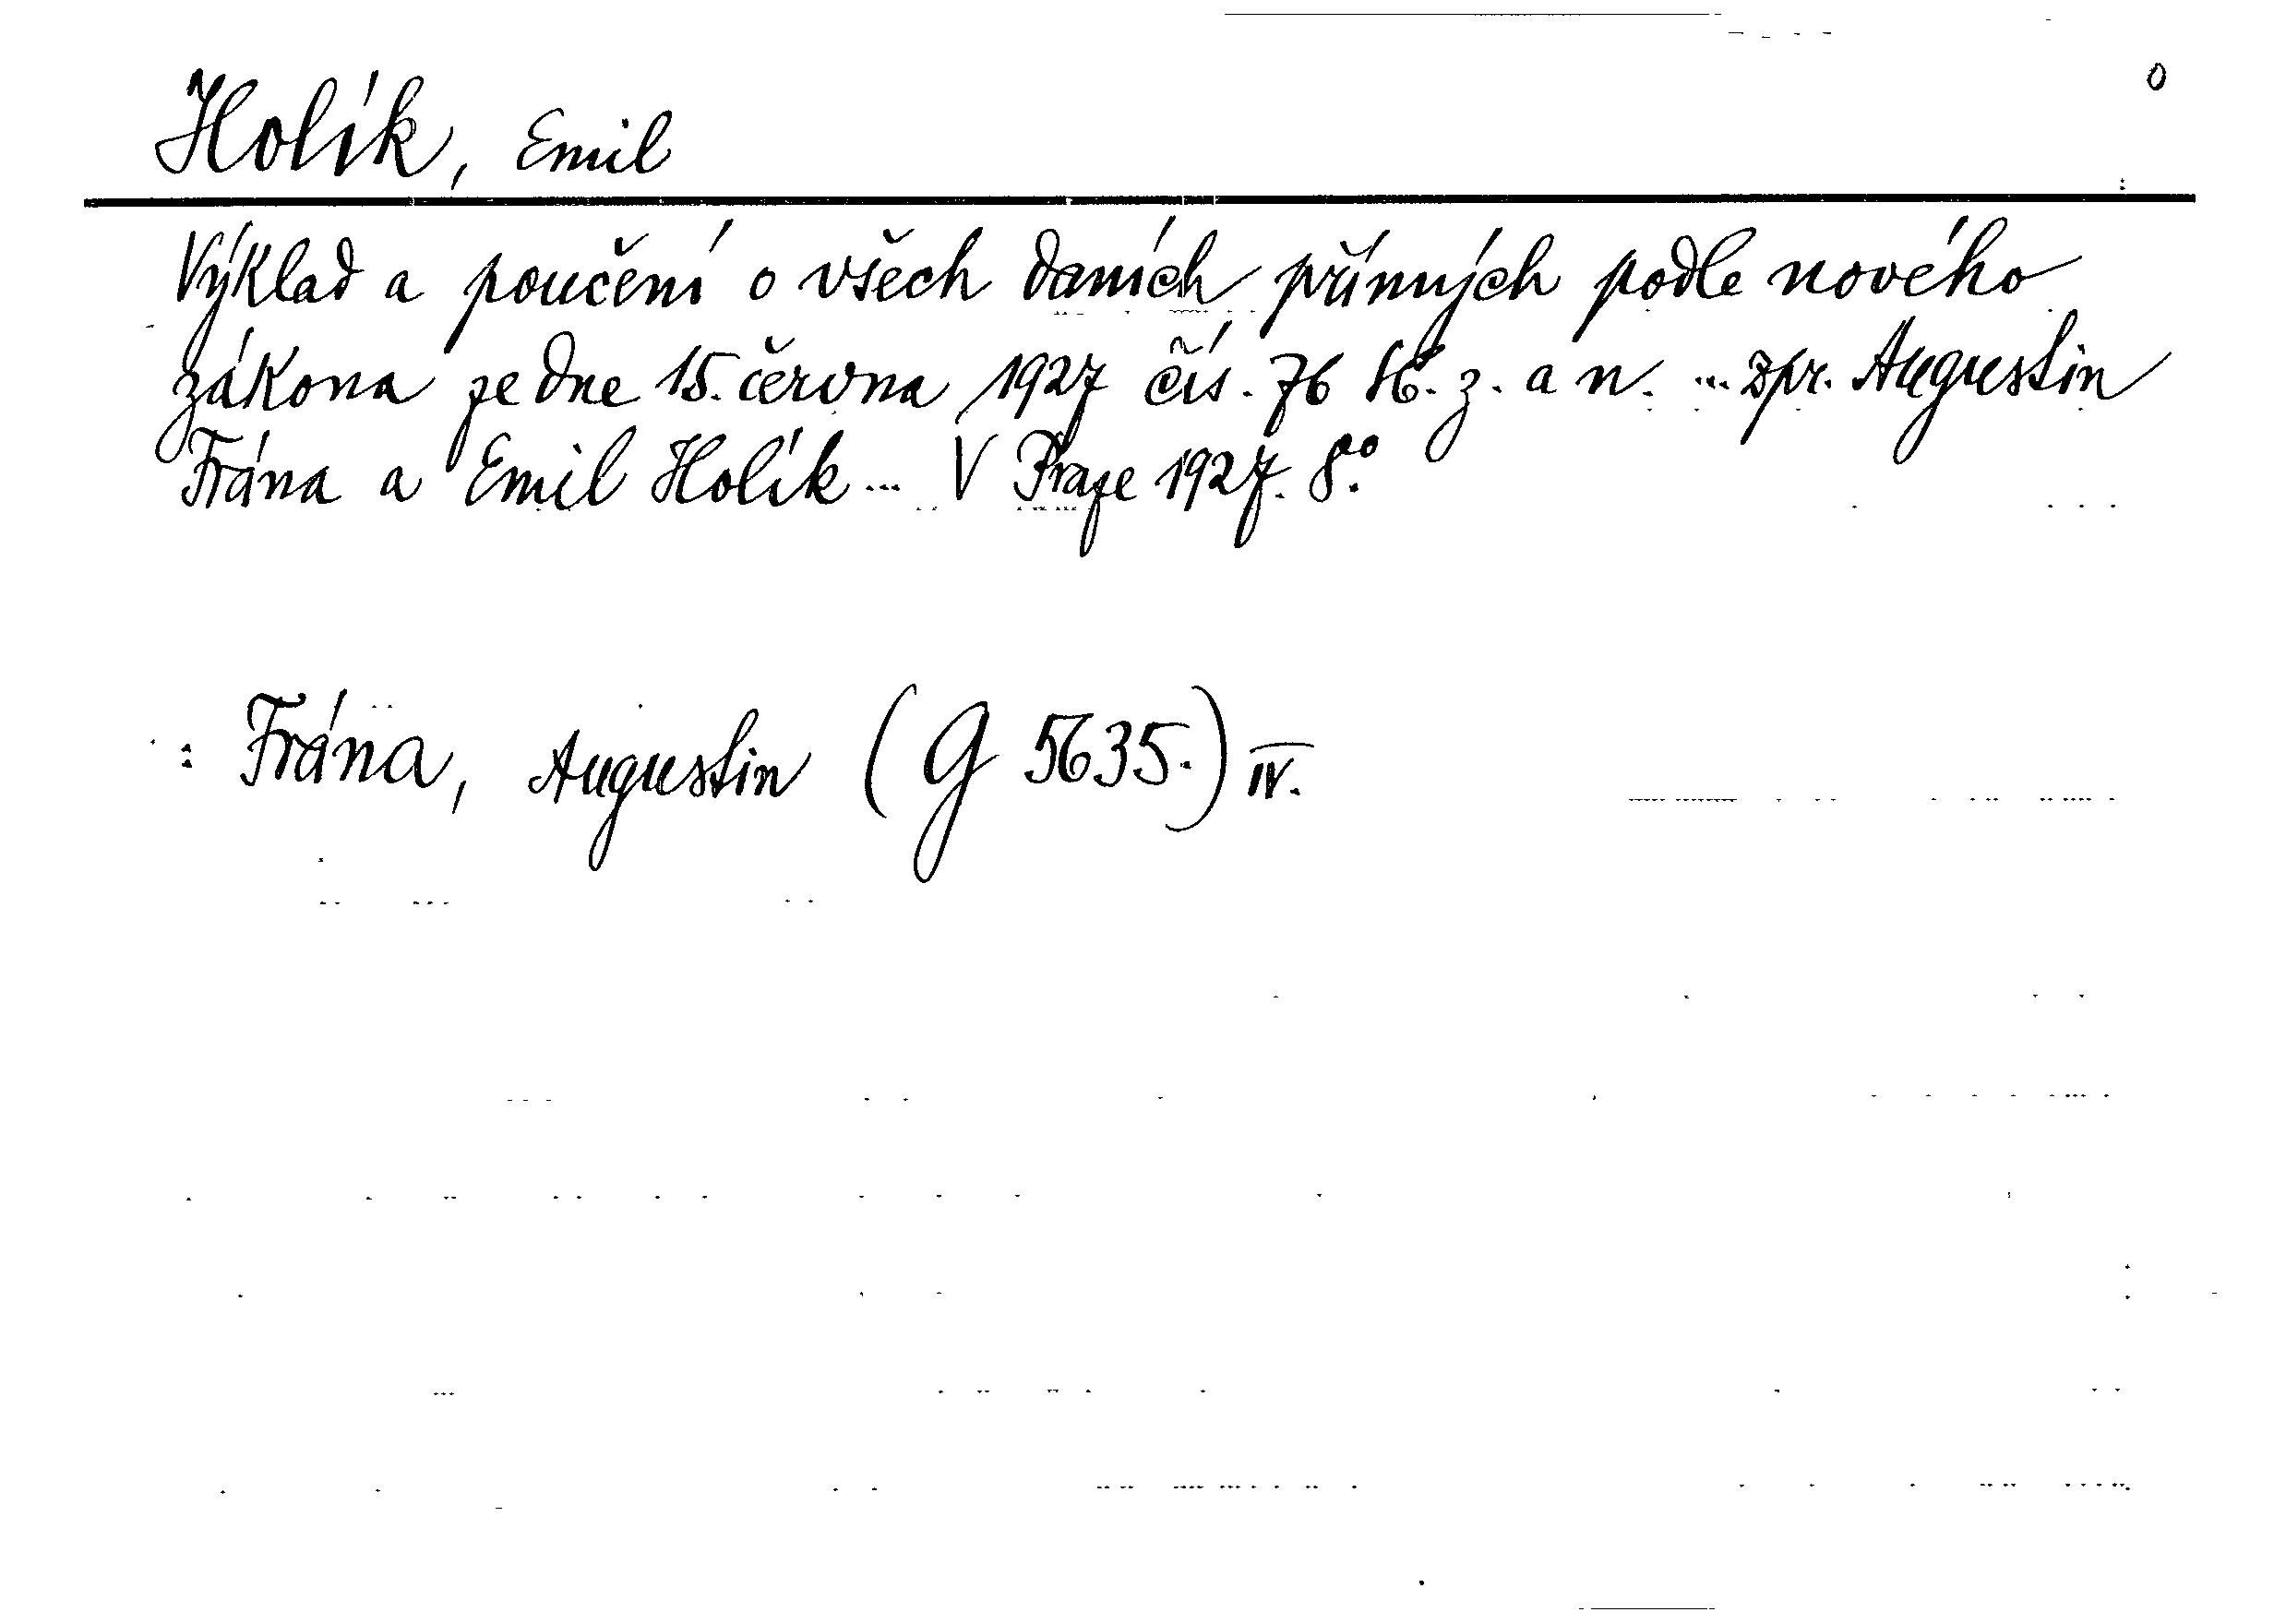 o
Holík, Emil
Výklad a poučení o všech daních přímých podle nového
zákona ze dne 15. června 1927 čís. 76 sb. z. a n. ... zpr. Augustin
Frána a Emil Holík ... V Praze 1927. 8.°
: Frána, Augustin (G 5635.) IV.